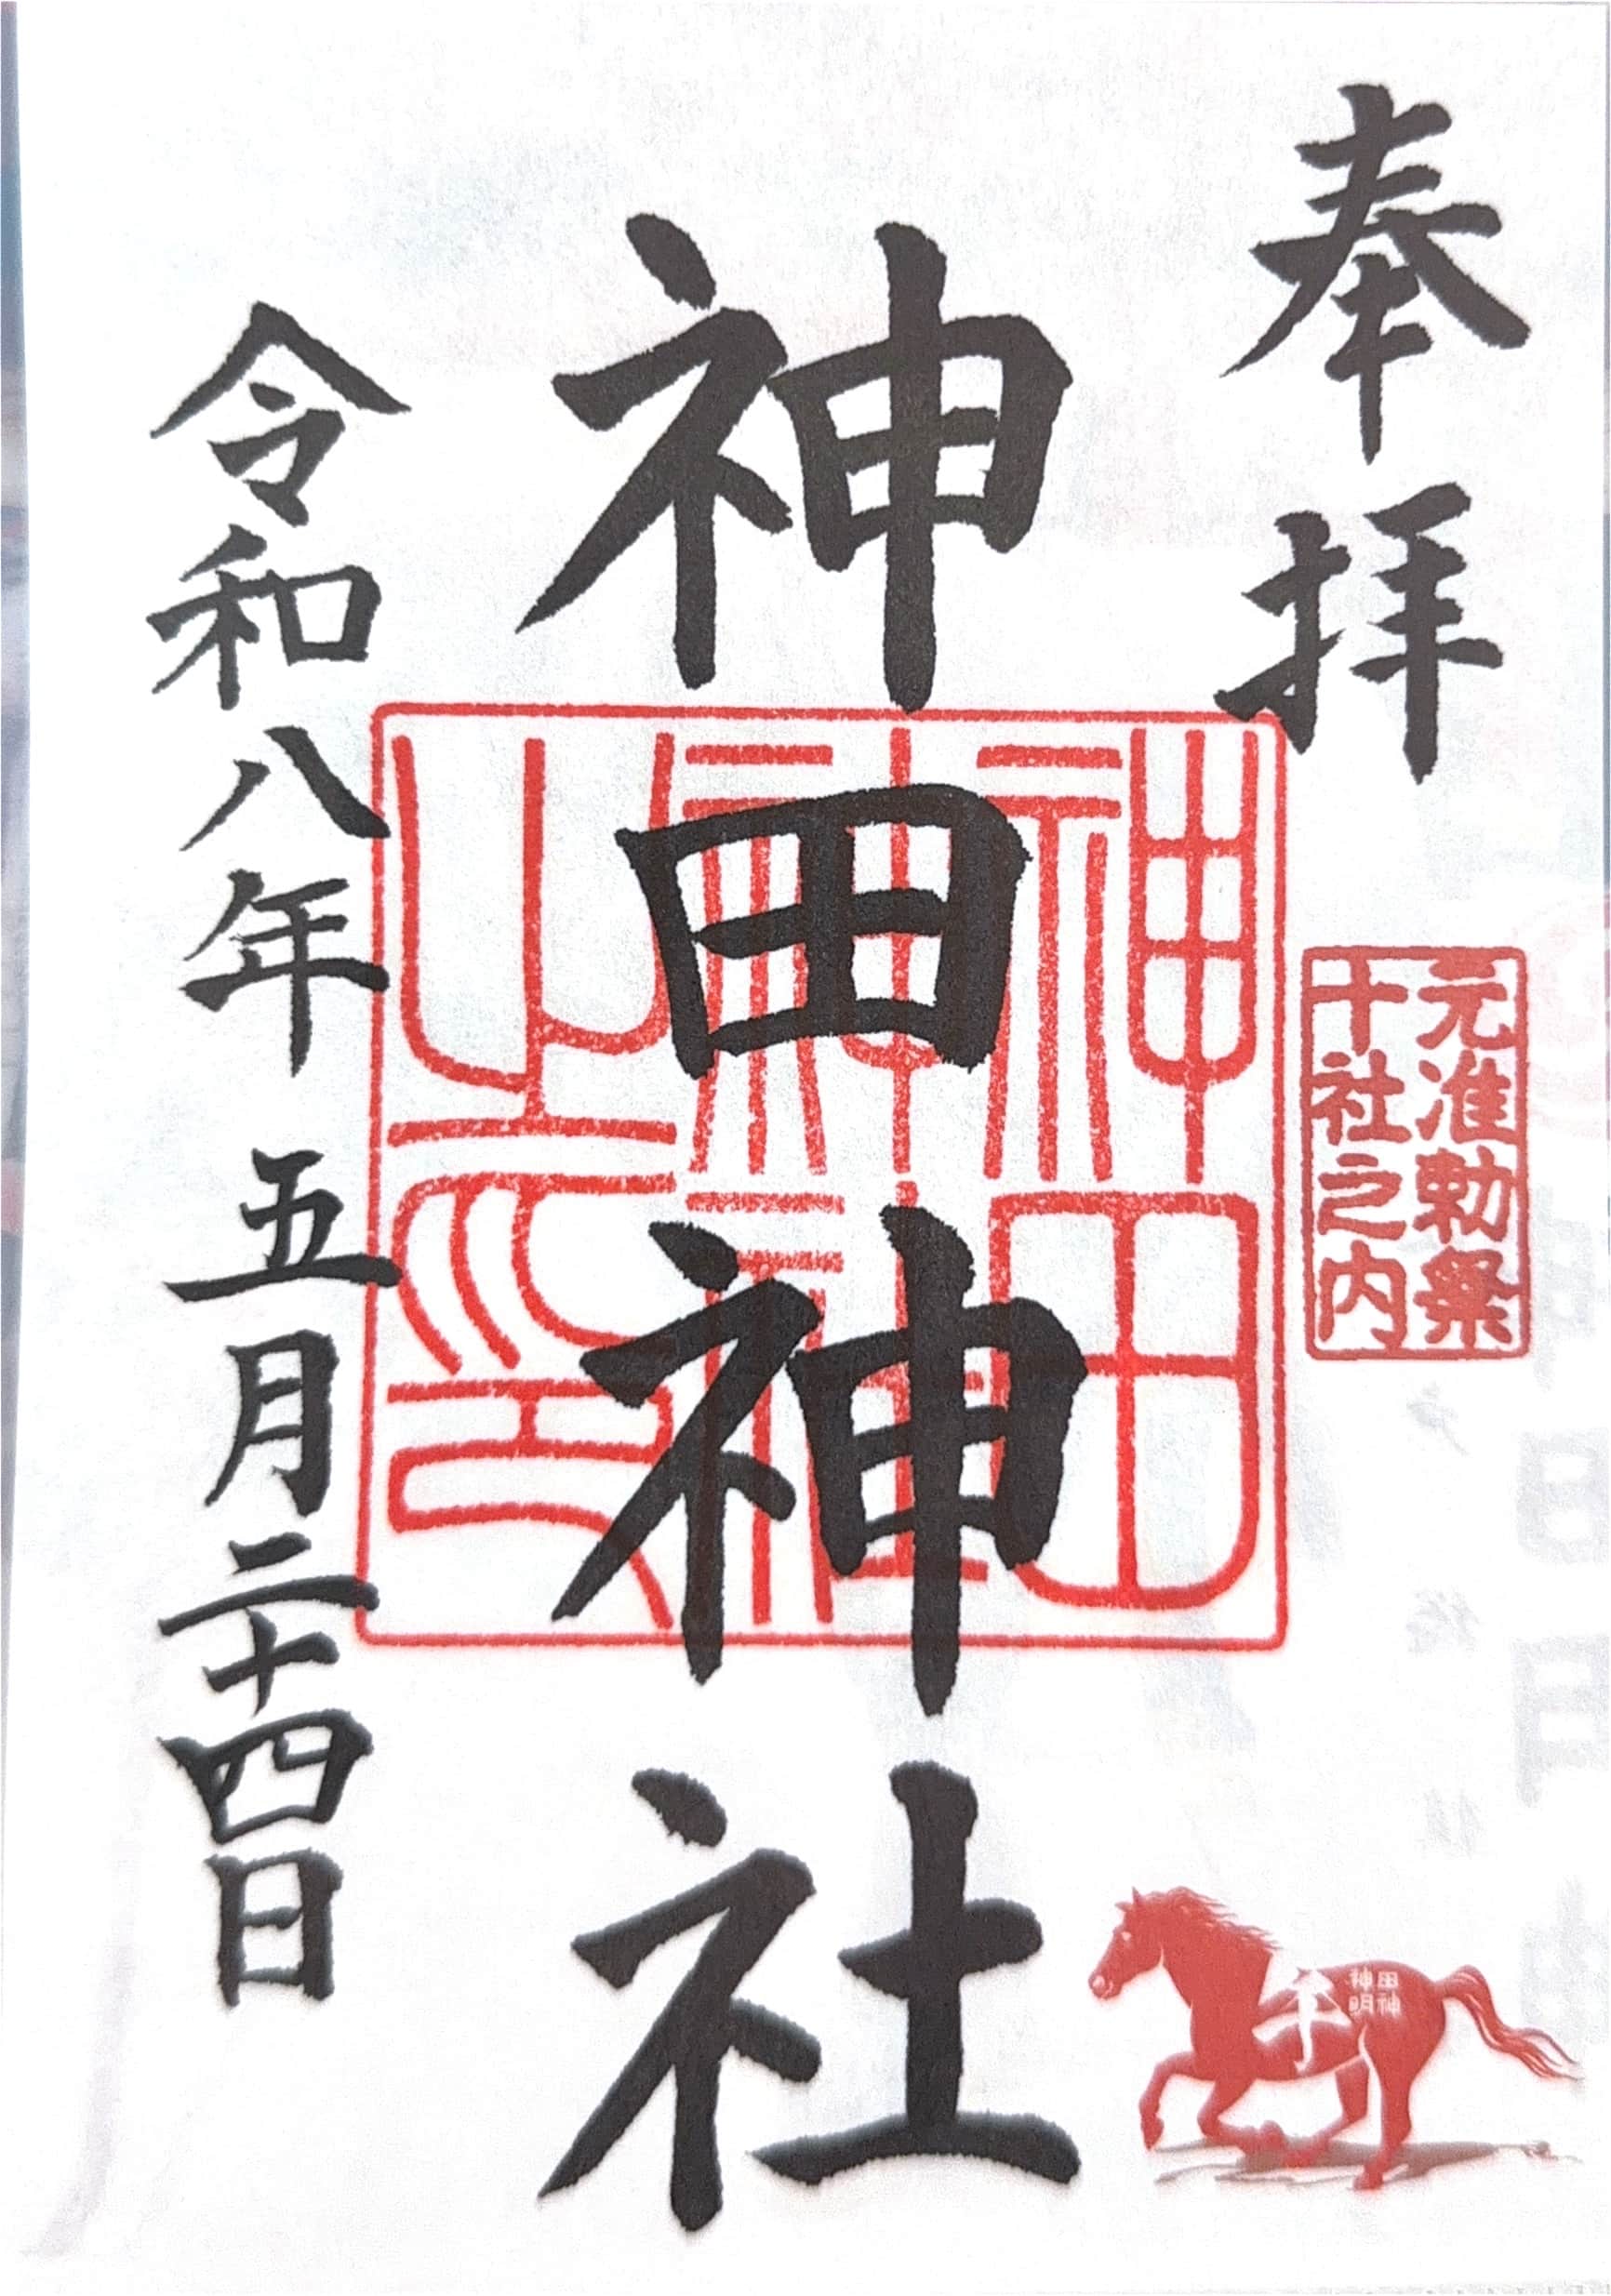 奉拝
元准勅祭
十社之内
神田神社
神田
神社
之印
令和八年 五月二十四日
午
神田
神明